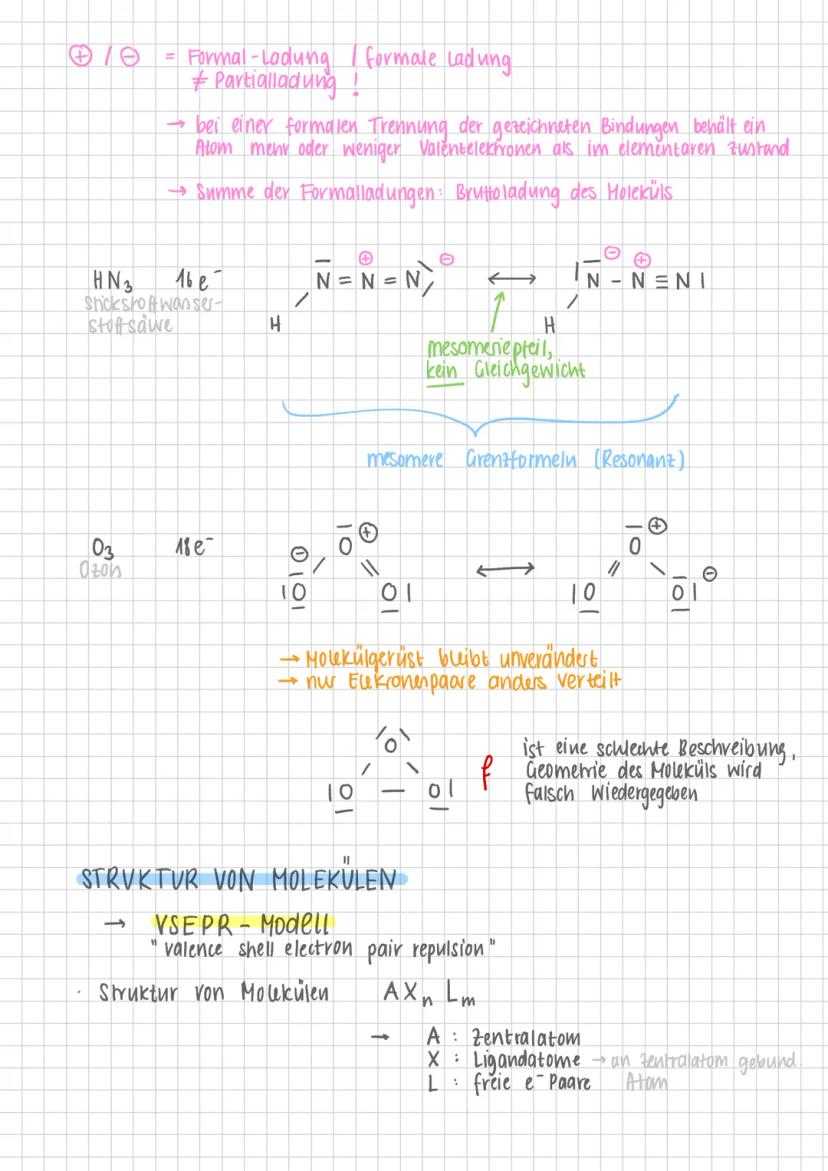 ⊕ / ⊖ = Formal-Ladung / formale Ladung
≠ Partialladung !
→ bei einer formalen Trennung der gezeichneten Bindungen behält ein
Atom mehr oder weniger Valenzelektronen als im elementaren Zustand
→ Summe der Formalladungen: Bruttoladung des Moleküls
HN3 16 e⁻ N = N = N ⊕ ⊖ ⟷ N - N ≡ N | ⊖ ⊕
Stickstoffwasser-
stoffsäure
H H
mesomeriepfeil,
kein Gleichgewicht
mesomere Grenzformeln (Resonanz)
O3 18 e⁻ O ⊕ ⟷ O ⊕
Ozon
⊖ |O O| |O O| ⊖
→ Molekülgerüst bleibt unverändert
→ nur Elekronenpaare anders verteilt
O
|O — O|
f
ist eine schlechte Beschreibung,
Geometrie des Moleküls wird
falsch wiedergegeben
STRUKTUR VON MOLEKÜLEN
→ VSEPR - Modell
"valence shell electron pair repulsion"
· Struktur von Molekülen AXn Lm
→ A : Zentralatom
X : Ligandatome → an Zentralatom gebund.
Atom
L : freie e⁻ Paare